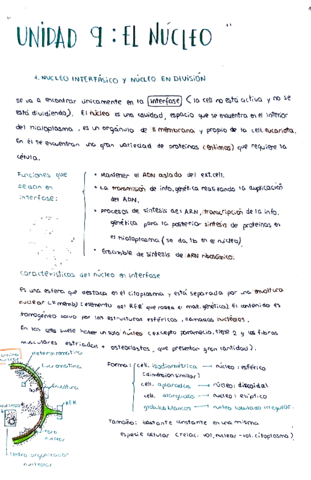 UNIDAD 9: EL NÚCLEO
1. NÚCLEO INTERFÁSICO Y NÚCLEO EN DIVISIÓN
se va a encontrar únicamente en la interfase (la cell no está activa y no se
está dividiendo). El núcleo es una cavidad, espacio que se encuentra en el interior
del hialoplasma, es un orgánulo de membrana y propio de la cell. eucariota.
En él se encuentran una gran variedad de proteínas (enzimas) que requiere la
célula.
Funciones que
se dan en
interfase:
• Mantener el ADN aislado del ext.cell.
• La transmisión de info.genética realizando la duplicación
del ADN.
• Procesos de síntesis del ARN, transcripción de la info.
genética para la posterior síntesis de proteínas en
el hialoplasma (se da tb en el núcleo)
• Ensamble de síntesis de ARN ribosómico.
Características del núcleo en interfase
Es una esfera que destaca en el citoplasma y está separada por una envoltura
nuclear (elemento del RER que rodea el mat.genético). El contenido es
homogéneo salvo por las estructuras esféricas, llamadas nucléolos.
En las cells suele haber un solo núcleo (excepto y las fibras
musculares estriadas + osteoclastos, que presentan gran cantidad).
Heterocromatina
Eucromatina
Envoltura
RER
Poro
nuclear
Centro organizador
nuclear
Forma: cell. isodiamétrica → núcleo: esférico
(dimensión similar)
cell. aplanadas → núcleo: discoidal
cell. alargada → núcleo: elíptico
glóbulos blancos → núcleo lobulado irregular.
Tamaño: bastante constante en una misma
especie celular (relac. vol.nuclear-vol.citoplasma).